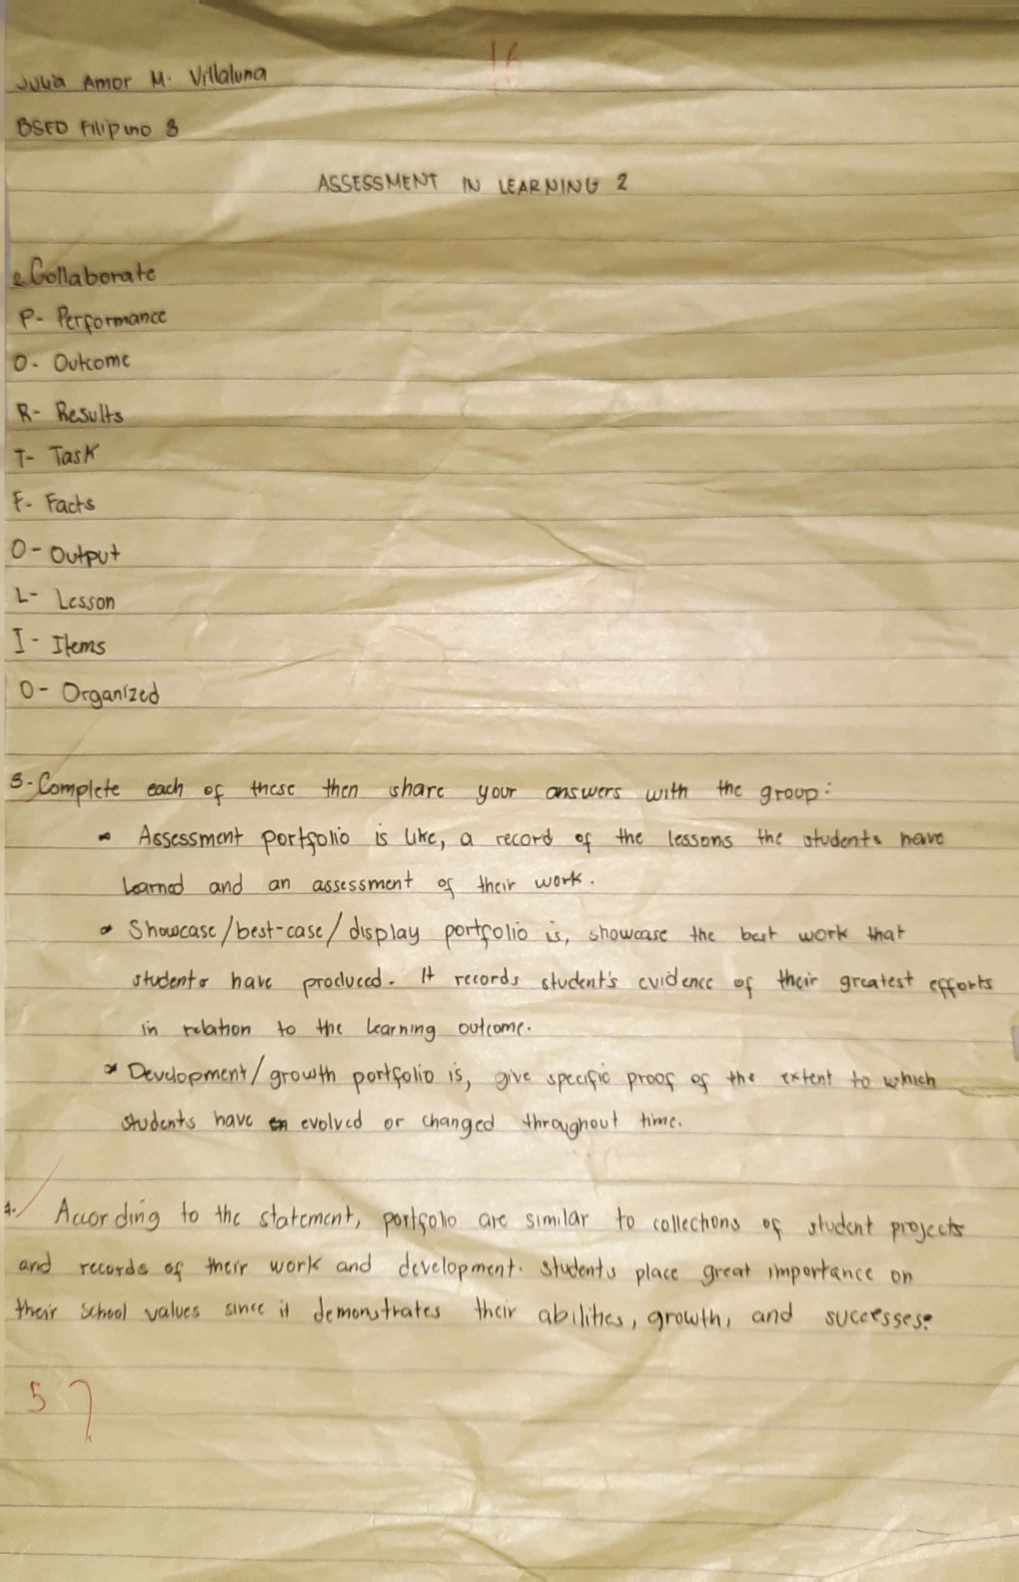 Julia Amor M. Villaluna
BSED Filipino 3
ASSESSMENT IN LEARNING 2
Collaborate
P- Performance
O- Outcome
R- Results
T- Task
F- Facts
O- Output
L- Lesson
I- Items
O- Organized
3- Complete each of these then share your answers with the group:
Assessment portfolio is like, a record of the lessons the students have
learned and an assessment of their work.
Showcase/best-case/display portfolio is, showcase the best work that
students have produced. It records student's evidence of their greatest efforts
in relation to the learning outcome.
Development/growth portfolio is, give specific proof of the extent to which
students have evolved or changed throughout time.
4. According to the statement, portfolio are similar to collections of student projects
and records of their work and development. Students place great importance on
their school values since it demonstrates their abilities, growth, and successes.
5